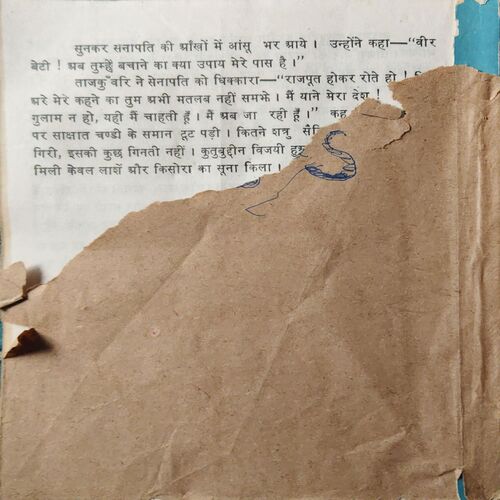 सुनकर सेनापति की आँखों में आंसू भर आये। उन्होंने कहा—“वीर
बेटी! अब तुम्हें बचाने का क्या उपाय मेरे पास है।”
ताजकुँवरि ने सेनापति को धिक्कारा—“राजपूत होकर रोते हो!
अरे मेरे कहने का तुम अभी मतलब नहीं समझे। मैं याने मेरा देश!
गुलाम न हो, यही मैं चाहती हूँ। मैं अब जा रही हूँ।” कह
पर साक्षात चण्डी के समान टूट पड़ी। कितने शत्रु सै
गिरी, इसकी कुछ गिनती नहीं। कुतुबुद्दीन विजयी
मिली केवल लाशें और किसोरा का सूना किला।